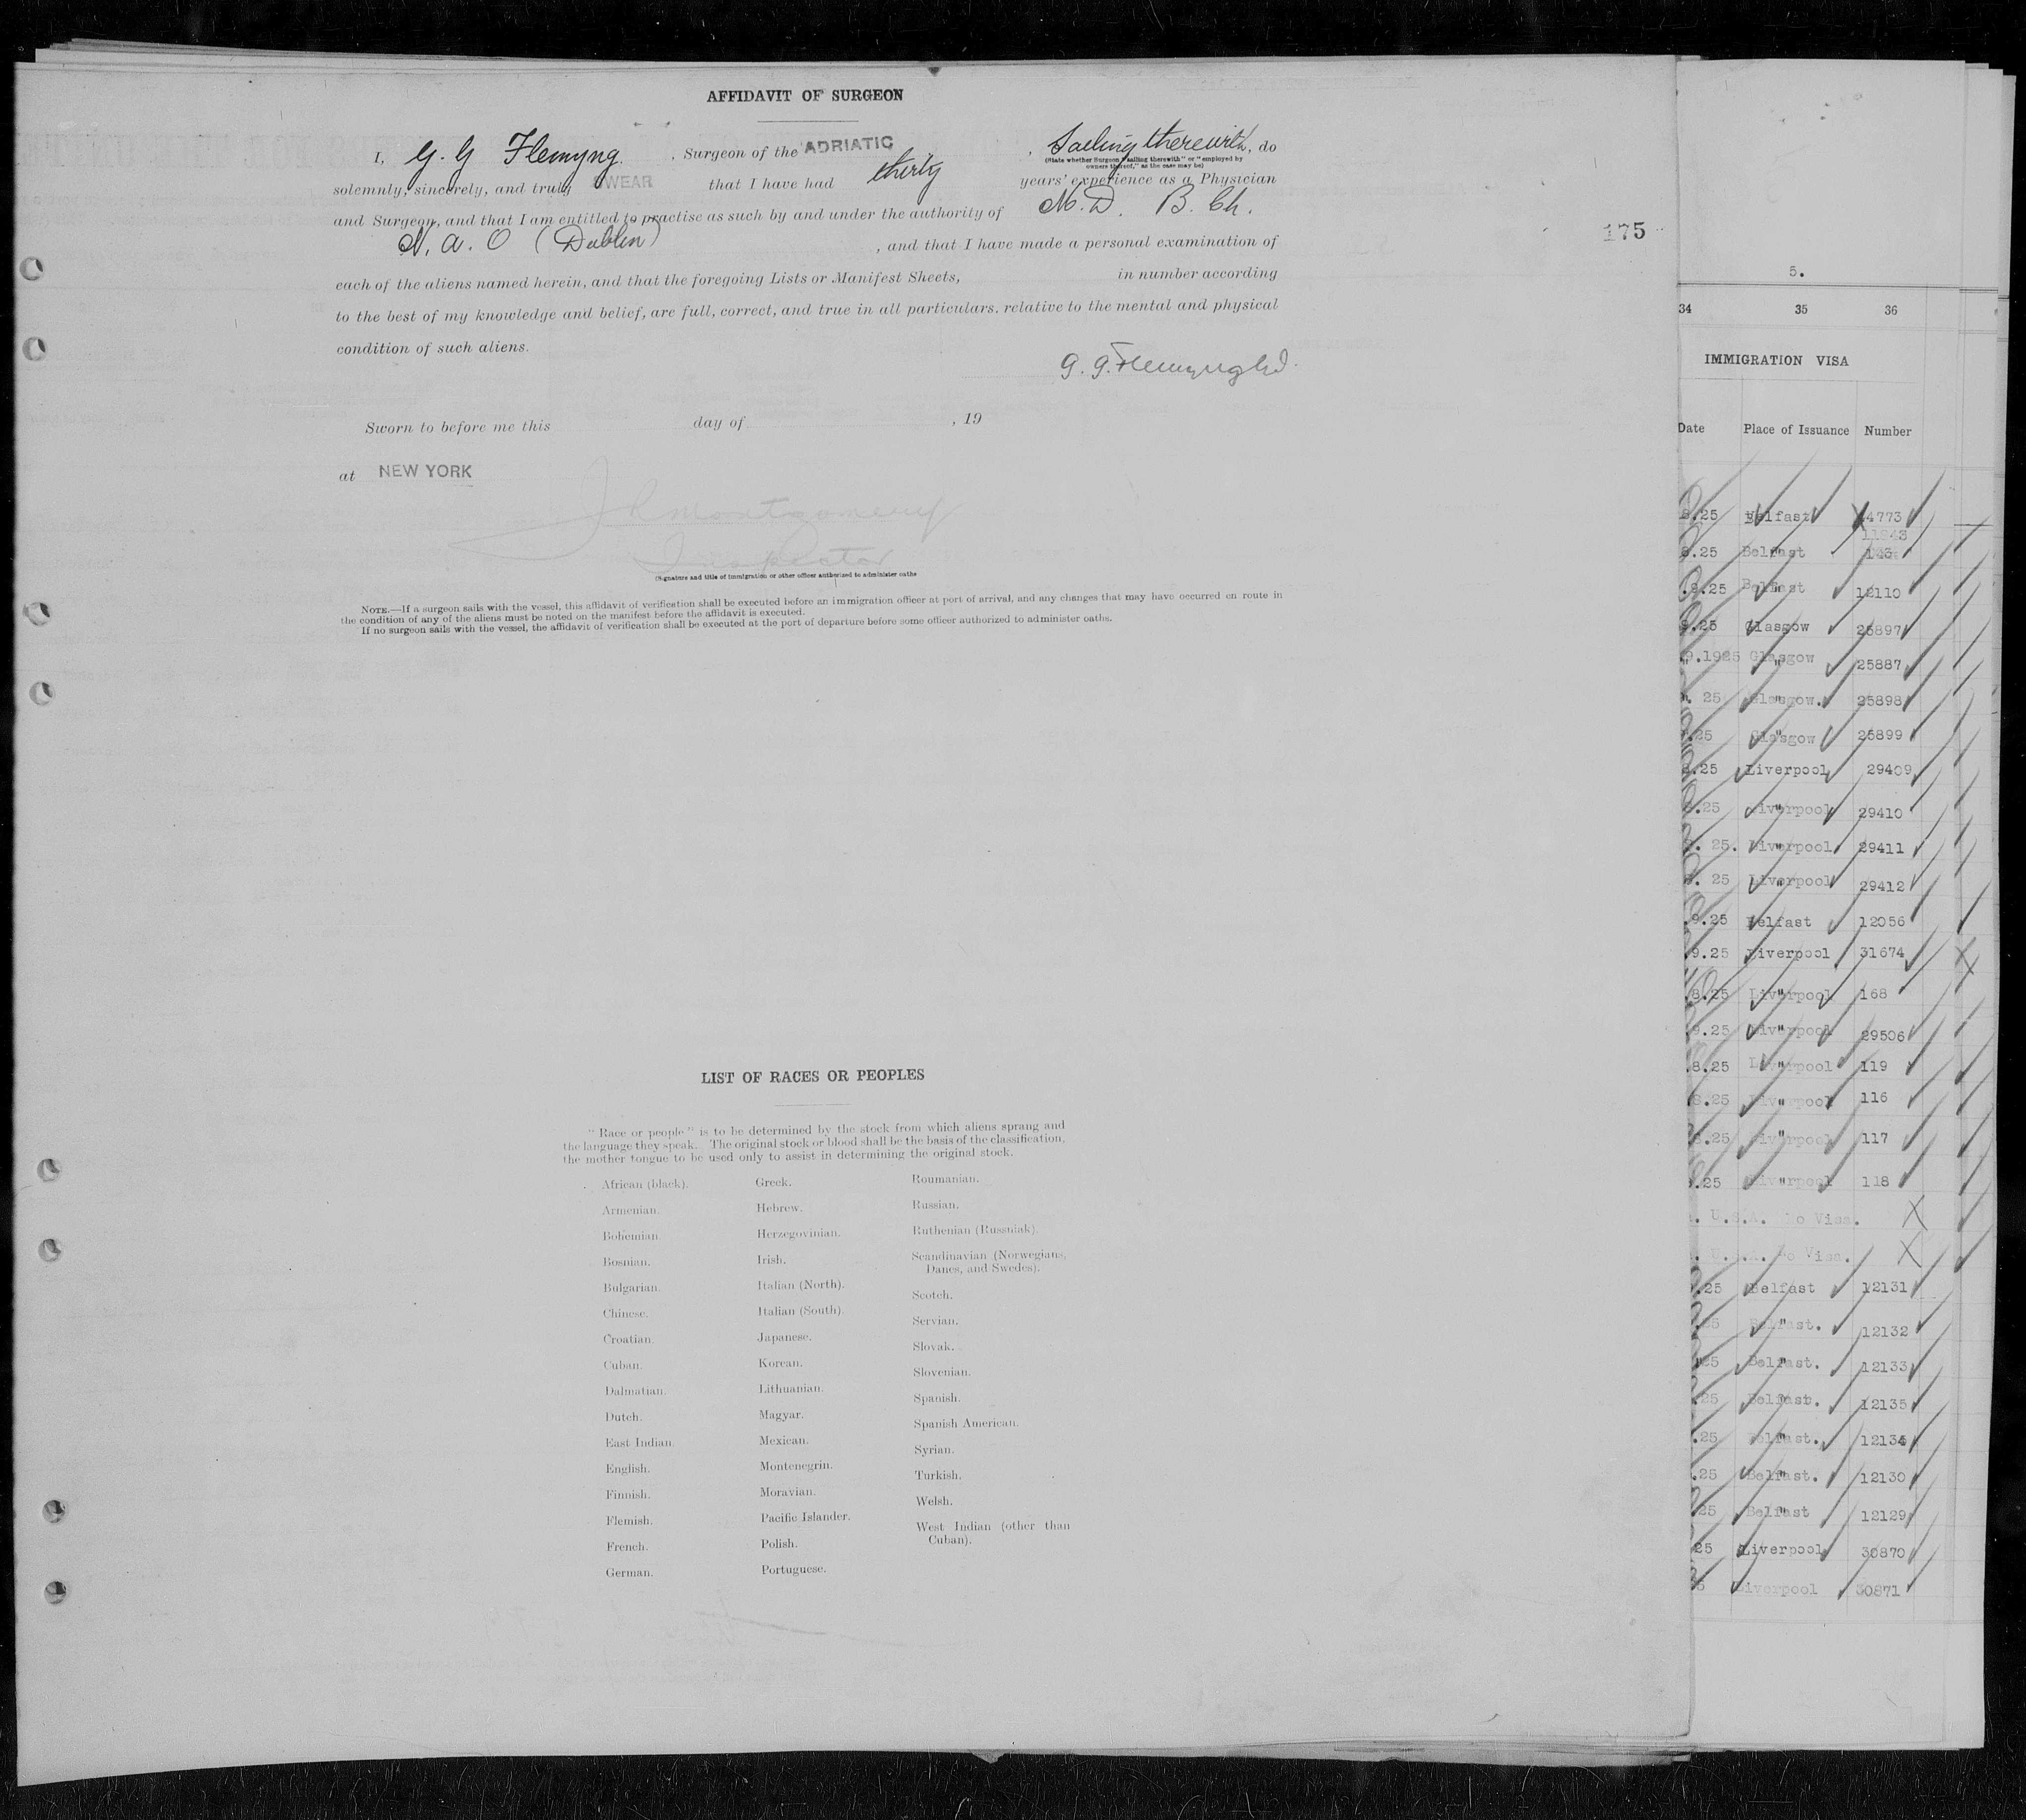 AFFIDAVIT OF SURGEON
I, G. G Flemyng. , Surgeon of the ADRIATIC , Sailing therewith, do
(State whether Surgeon "sailing therewith" or "employed by
owners thereof," as the case may be)
solemnly, sincerely, and truly SWEAR that I have had thirty years' experience as a Physician
and Surgeon, and that I am entitled to practise as such by and under the authority of M.D. B. Ch.
(Dublin) , and that I have made a personal examination of
each of the aliens named herein, and that the foregoing Lists or Manifest Sheets, in number according
to the best of my knowledge and belief, are full, correct, and true in all particulars. relative to the mental and physical
condition of such aliens.
G. G. Flemyng
Sworn to before me this day of , 19
at NEW YORK
J R Montgomery
Inspector
(Signature and title of immigration or other officer authorized to administer oaths
NOTE.—If a surgeon sails with the vessel, this affidavit of verification shall be executed before an immigration officer at port of arrival, and any changes that may have occurred en route in
the condition of any of the aliens must be noted on the manifest before the affidavit is executed.
If no surgeon sails with the vessel, the affidavit of verification shall be executed at the port of departure before some officer authorized to administer oaths.
LIST OF RACES OR PEOPLES
"Race or people" is to be determined by the stock from which aliens sprang and
the language they speak. The original stock or blood shall be the basis of the classification,
the mother tongue to be used only to assist in determining the original stock.
African (black).
Armenian.
Bohemian.
Bosnian.
Bulgarian.
Chinese.
Croatian.
Cuban.
Dalmatian.
Dutch.
East Indian.
English.
Finnish.
Flemish.
French.
German.
Greek.
Hebrew.
Herzegovinian.
Irish.
Italian (North).
Italian (South).
Japanese.
Korean.
Lithuanian.
Magyar.
Mexican.
Montenegrin.
Moravian.
Pacific Islander.
Polish.
Portuguese.
Roumanian.
Russian.
Ruthenian (Russniak).
Scandinavian (Norwegians,
Danes, and Swedes).
Scotch.
Servian.
Slovak.
Slovenian.
Spanish.
Spanish American.
Syrian.
Turkish.
Welsh.
West Indian (other than
Cuban).
175
5.
34 35 36
IMMIGRATION VISA
Date Place of Issuance Number
.25 Belfast 4773
11843
.25 Belfast
.9.25 Belfast 12110
.25 Glasgow 25897
9.1925 Glasgow 25887
25 Glasgow. 25898
.25 Glasgow 25899
.25 Liverpool 29409
.25 Liverpool 29410
25. Liverpool. 29411
25 Liverpool 29412
9.25 Belfast 12056
9.25 Liverpool 31674
8.25 Liverpool 168
9.25 Liverpool 29506
8.25 Liverpool 119
8.25 Liverpool 116
.25 Liverpool 117
.25 Liverpool 118
U.S.A. No Visa.
U.S.A. No Visa.
.25 Belfast 12131
Belfast. 12132
25 Belfast. 12133
25 Belfast. 12135
.25 Belfast. 12134
.25 Belfast. 12130
25 Belfast 12129
25 Liverpool 30870
Liverpool 30871